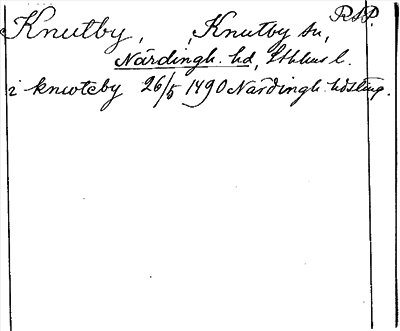 RSP.
Knutby, , Knutby sn,
Närdingh. hd, Sthlms l.
i knwteby 26/5 1490 Närdingh. hdsting.